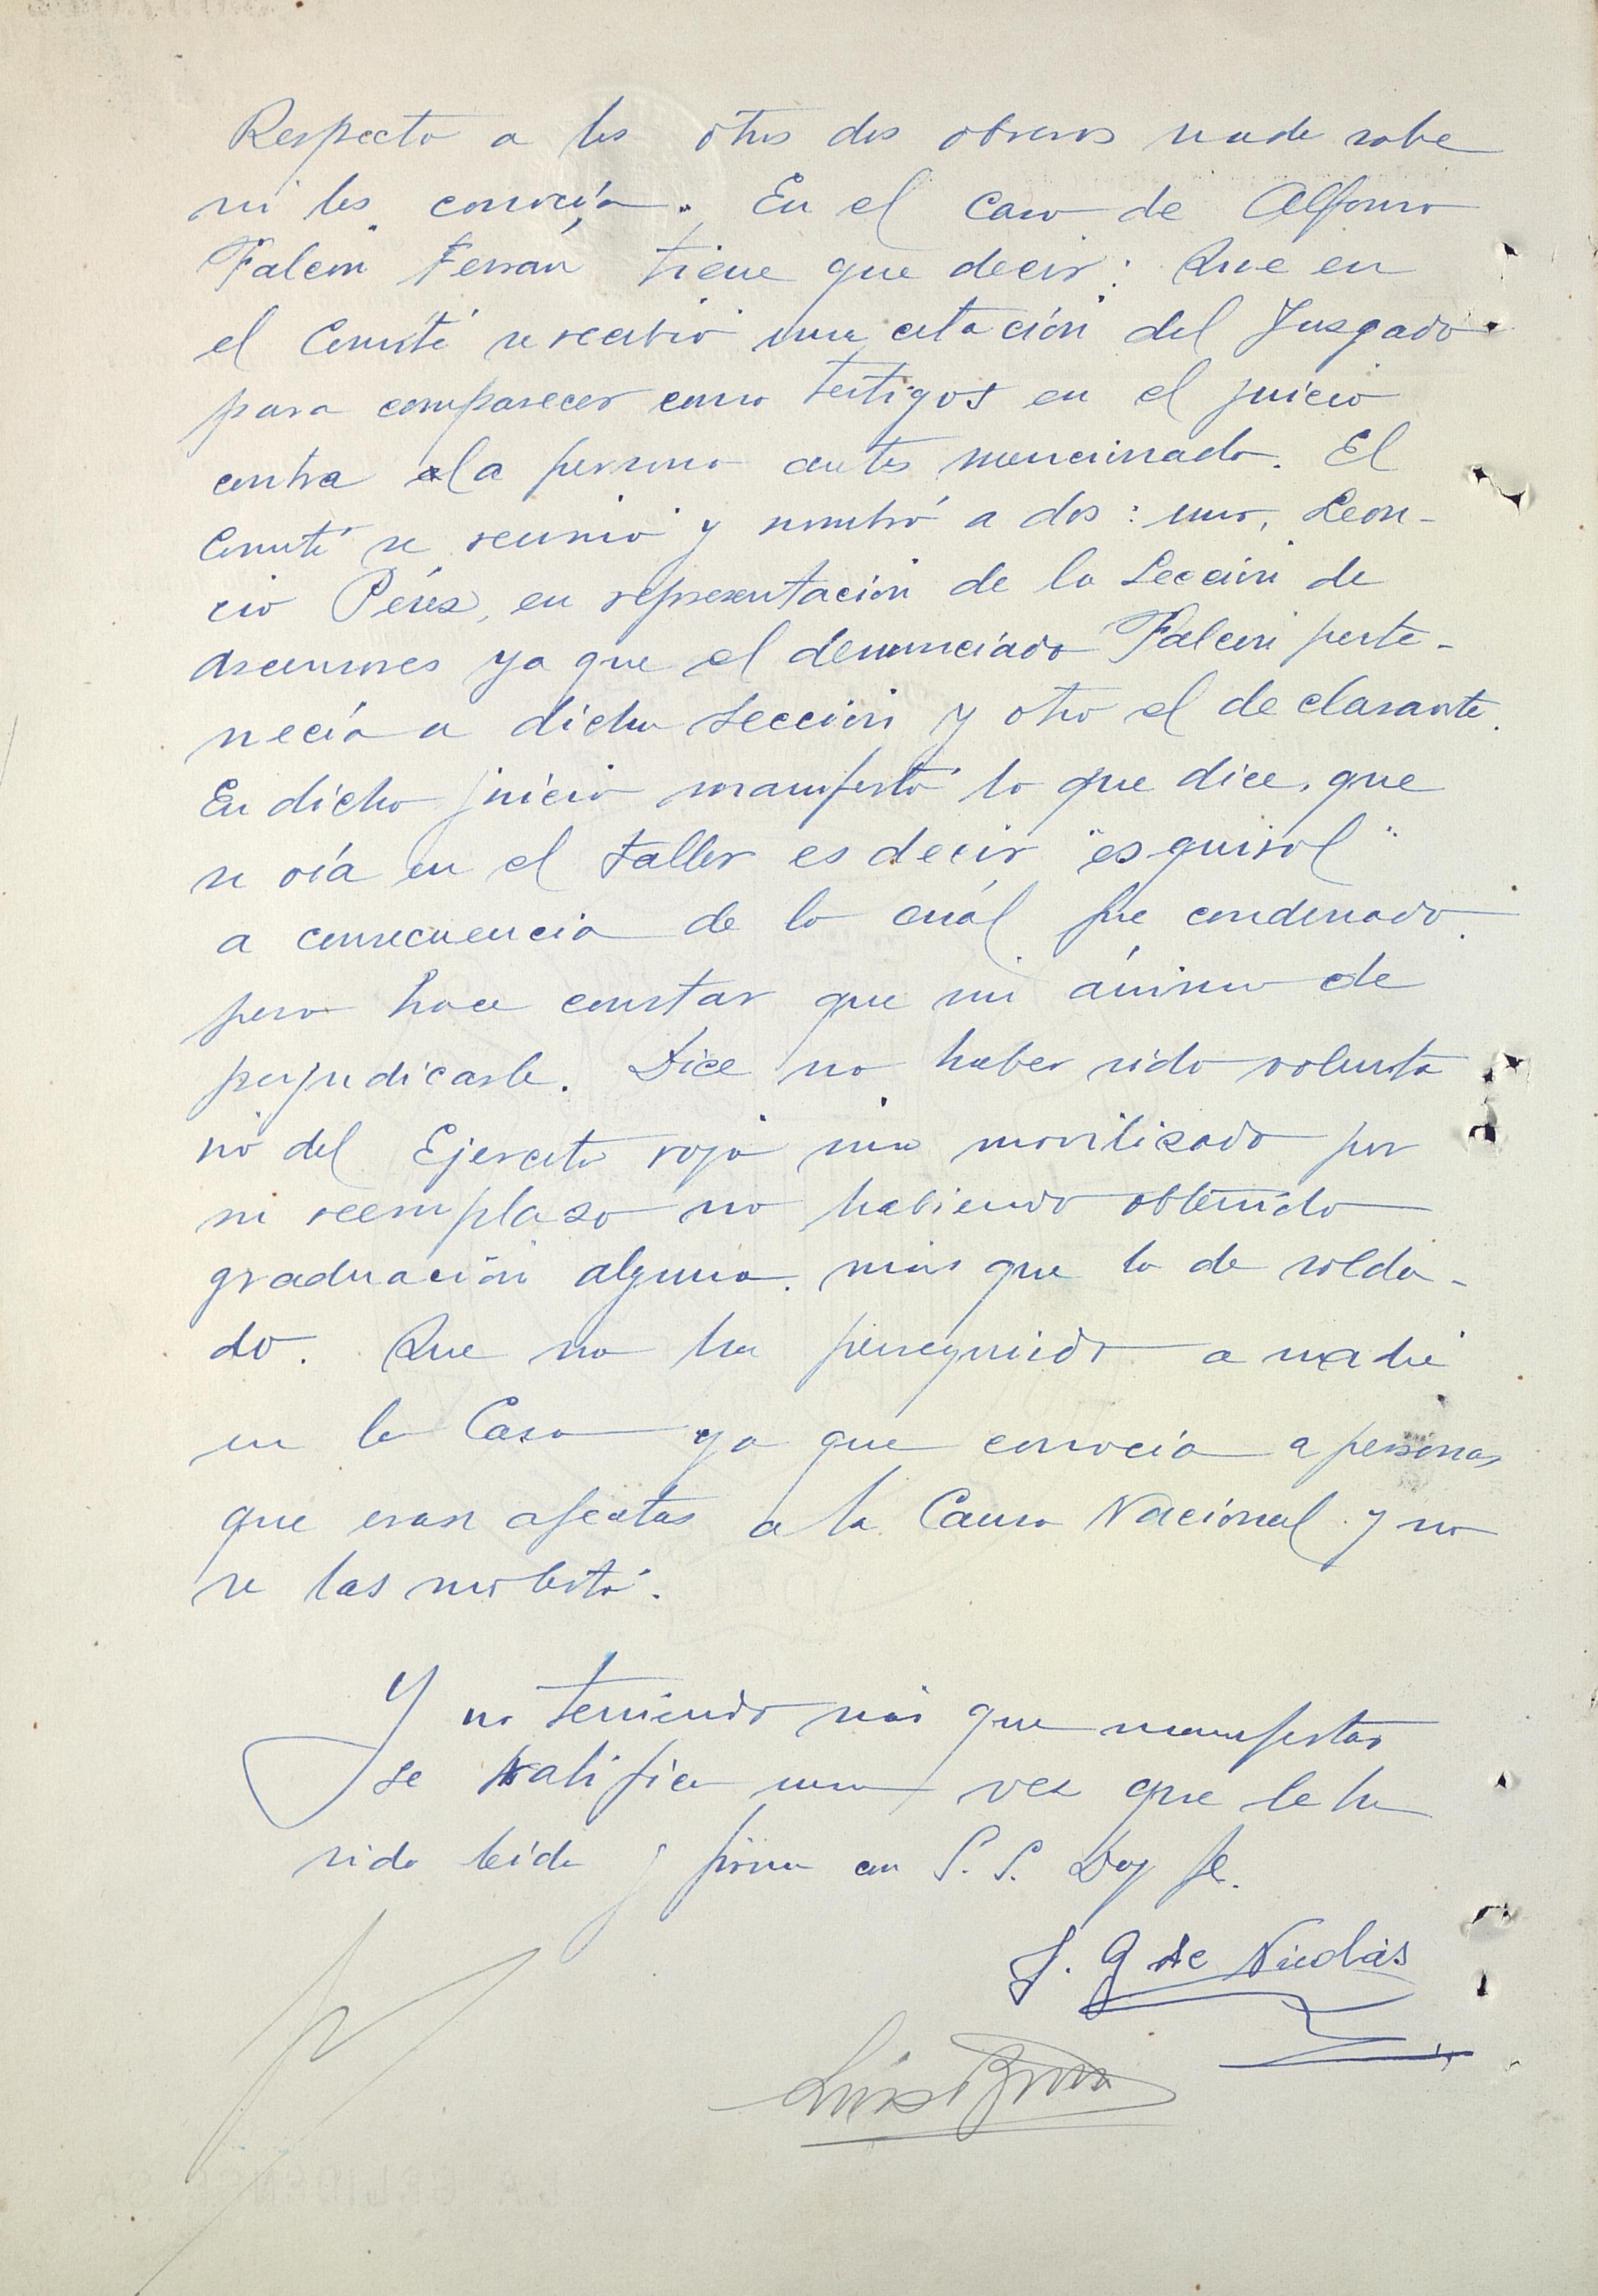 Respecto a los otros dos obreros nada sabe
ni los conocía. En el caso de Alfonso
Falcón Ferrán tiene que decir: Que en
el Comité se recibió una citación del Juzgado
para comparecer como testigos en el juicio
contra la persona antes mencionada. El
Comité se reunió y nombró a dos: uno, Leon-
cio Pérez, en representación de la Sección de
ascensores ya que el denunciado Falcón perte-
necía a dicha sección y otro el declarante.
En dicho juicio manifestó lo que dice, que
se oía en el taller es decir "esquirol"
a consecuencia de lo cuál fue condenado.
pero hace constar que sin ánimo de
perjudicarle. Dice no haber sido volunta
rio del Ejercito rojo sino movilizado por
su reemplazo no habiendo obtenido
graduación alguna. más que la de solda-
do. Que no ha perseguido a nadie
en la Casa ya que conocía a personas
que eran afectas a la Causa Nacional y no
se las molestó.
Y no teniendo más que manifestar
se ratifica una vez que le ha
sido leída y firma con S. S. Doy fe.
J. G de Nicolás
Luis